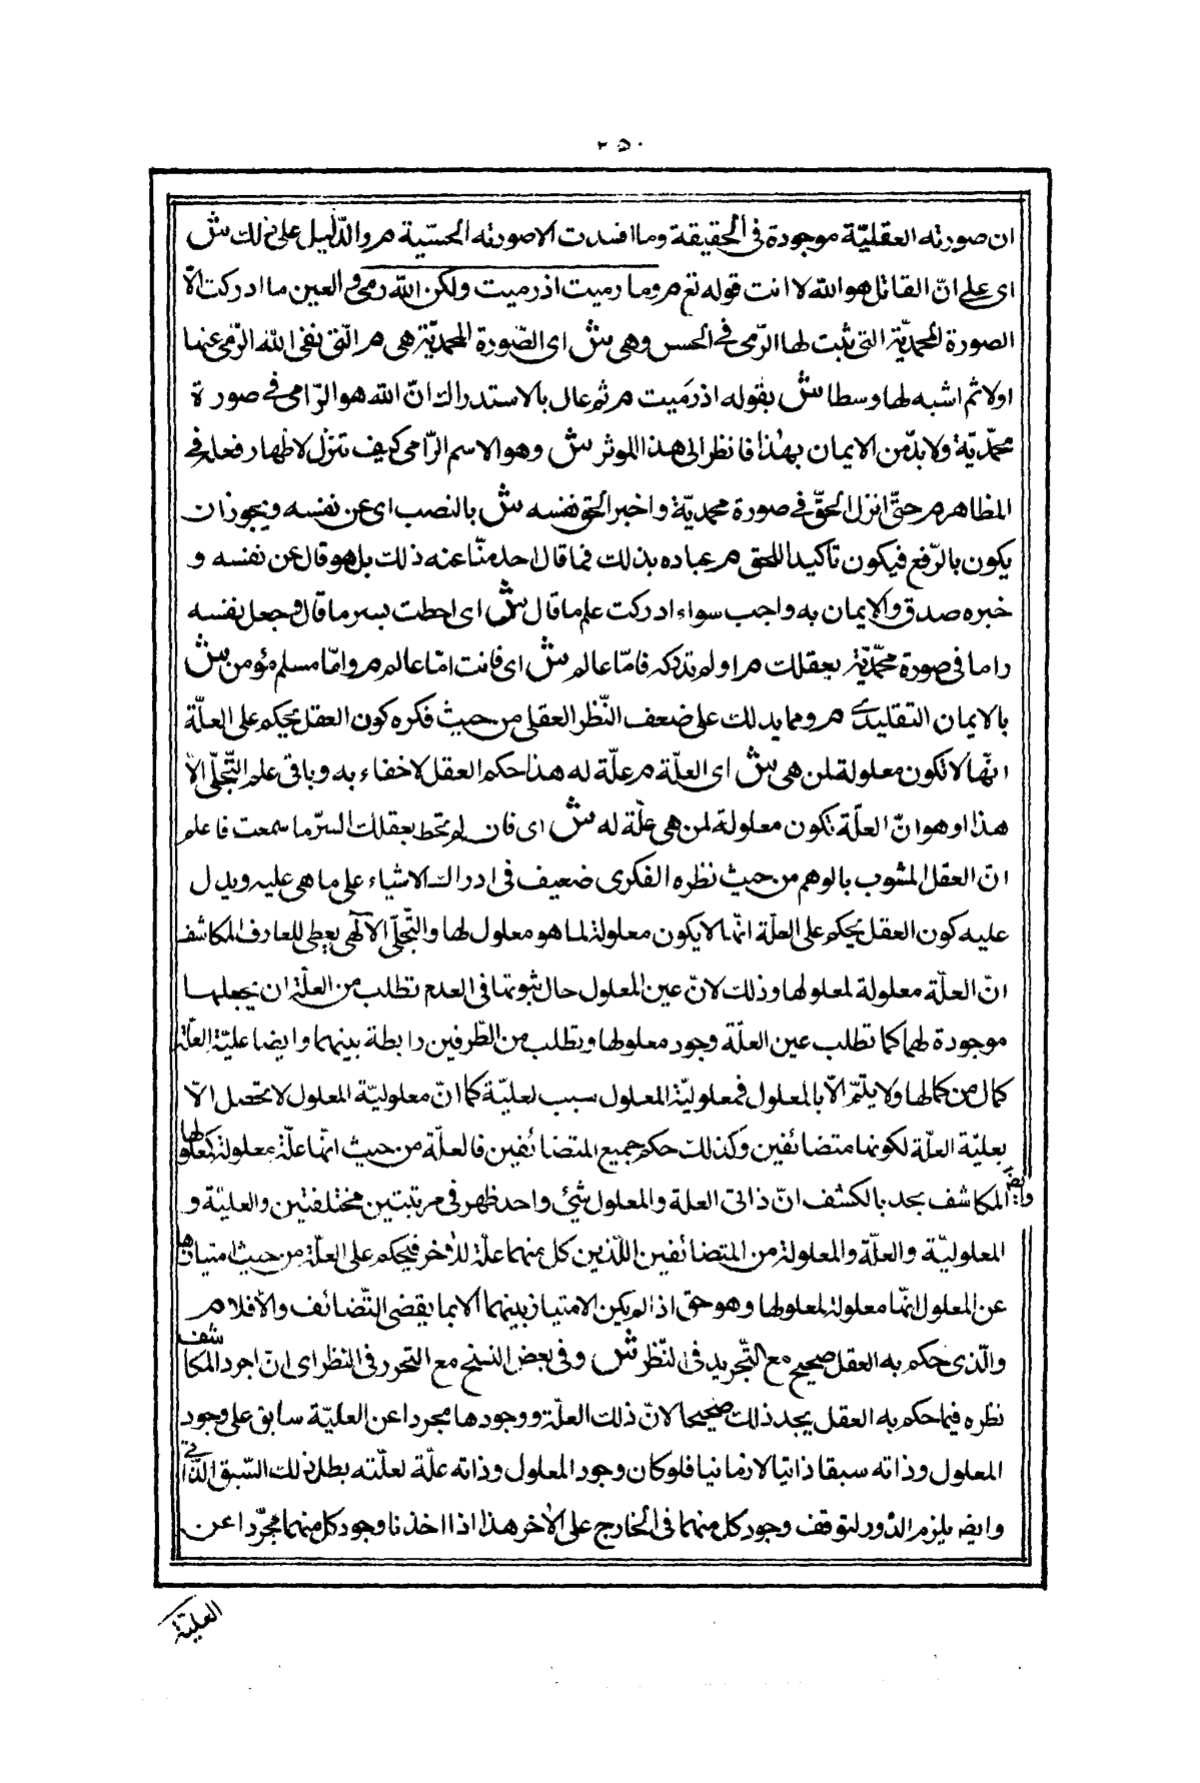 ٢٥٠
ان صورته العقليّة موجودة فى الحقيقة وما افسدت الا صورته الحسّية م والدّليل على ذلك ش
اى على انّ القاتل هو الله لا انت قوله تع م وما رميت اذ رميت ولكن الله رمى والعين ما ادركت الّا
الصورة المحمديّة التى ثبت لها الرّمى فى الحس وهى ش اى الصّورة المحمديّة هى م الّتى نفى الله الرّمى عنها
اولا ثم اثبته لها وسطا ش بقوله اذ رَميت م ثم عاد بالاستدراك انّ الله هو الرّامى فى صورة
محمّديّة ولا بدّ من الايمان بهذا فانظر الى هذا الموثر ش وهو الاسم الرّامى كيف تنزل لاظهار فعله فى
المظاهر م حتّى انزل الحقّ فى صورة محمديّة واخبر الحق نفسه ش بالنصب اى عن نفسه ويجوز ان
يكون بالرّفع فيكون تاكيدا للحق م عباده بذلك فما قال احد منّا عنه ذلك بل هو قال عن نفسه و
خبره صدق والايمان به واجب سواء ادركت علم ما قال ش اى احطت بسر ما قال وجعل نفسه
راميا فى صورة محمّديّة بعقلك م او لم تدركه فامّا عالم ش اى فانت امّا عالم م وامّا مسلم مؤمن ش
بالايمان التقليدى م ومما يدلك على ضعف النّظر العقلى من حيث فكره كون العقل يحكم على العلّة
انّها لا تكون معلولة لمن هى ش اى العلّة م علّة له هذا حكم العقل لا خفاء به وباقى علم التّجلّى الّا
هذا وهو انّ العلّة تكون معلولة لمن هى علّة له ش اى فان لم تحط بعقلك السرّ ما سمعت فاعلم
انّ العقل المشوب بالوهم من حيث نظره الفكرى ضعيف فى ادراك الاشياء على ما هى عليه ويدل
عليه كون العقل يحكم على العلّة انّها لا يكون معلولة لما هو معلول لها والتّجلّى الآلهى يعطى للعارف المكاشف
انّ العلّة معلولة لمعلولها وذلك لانّ عين المعلول حال ثبوتها فى العدم تطلب من العلّة ان يجعلها
موجودة لها كما تطلب عين العلّة وجود معلولها ويطلب من الطّرفين رابطة بينهما وايضا عليّة العلّة
كمال من كمالها ولا يتمّ الّا بالمعلول فمعلوليّة المعلول سبب لعليّة كما انّ معلوليّة المعلول لا تحصل الّا
بعليّة العلّة لكونها متضائفين وكذلك حكم جميع المتضائفين فالعلّة من حيث انّها علّة معلولة لمعلولها
وايضا المكاشف يجد بالكشف انّ ذاتى العلة والمعلول شئ واحد ظهر فى مرتبتين مختلفتين والعليّة و
المعلوليّة والعلّة والمعلولة من المتضائفين اللّذين كل منهما علّة للأخر فيحكم على العلّة من حيث امتيازها
عن المعلول انّها معلولة لمعلولها وهو حق اذ لم يكن الامتياز بينهما الا بما يقضى التّضائف والّا فلا م
والّذى حكم به العقل صحيح مع التّجريد فى النّظر ش وفى بعض النسخ مع التحرر فى النظر اى انّ اجود المكاشف
نظره فيما حكم به العقل يجد ذلك صحيحا لانّ ذلك العلّة ووجودها مجردا عن العليّة سابق على وجود
المعلول وذاته سبقا ذاتيا لا زمانيا فلو كان وجود المعلول وذاته علّة لعلّته بطل ذلك السّبق الذّاتى
وايضا يلزم الدّور لتوقف وجود كل منهما فى الخارج على الأخر هذا اذا اخذنا وجود كل منهما مجرّدا عن
العليّة